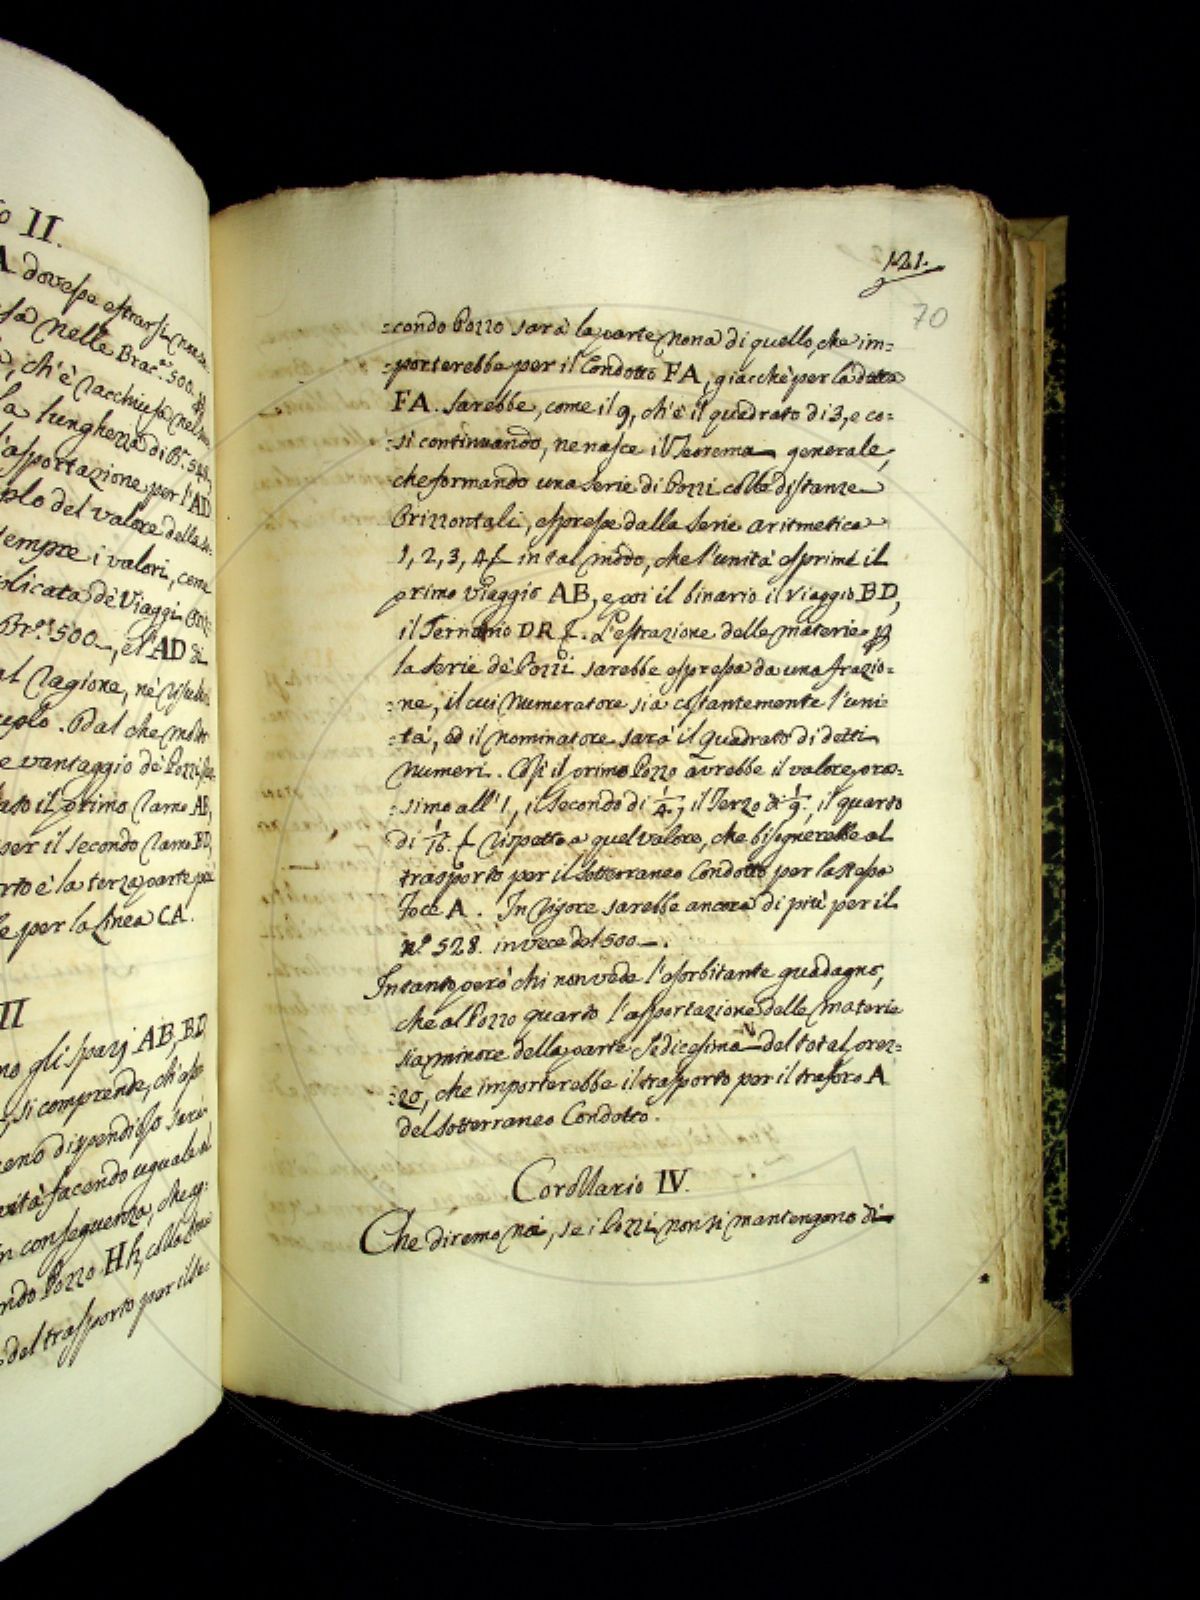 o II.
A dovesse estrarsi non se-
sa nelle Brac.ª 500. p
, ch'è racchiusa nel
la lunghezza di B.ª
l'asportazione per l'AD
plo del valore della
tempre i valori, come
plicata de Viaggi
Br.ª 500_, e l'AD di
al ragione, nè
uolo. Dal che molto
e vantaggio de' Pozzi
ato il primo ramo AB,
per il secondo ramo BD,
rto è la terza parte più
le per la linea CA.
II
no gli spazj AB, BD
, si comprende, ch'
eno dispendioso
vità facendo uguale al
in conseguenza, che
ondo Pozzo Hh, colla
del trasporto per il se-
121.
70
=condo Pozzo sarà la parte nona di quello, che im=
=porterebbe per il Condotto FA, giacchè per la detta
FA. sarebbe, come il 9, ch'è il quadrato di 3, e co=
=si continuando, ne nasce il Teorema generale,
che formando una serie di Pozzi colle distanze
Orizzontali, espresse dalla serie aritmetica
1, 2, 3, 4 & in tal modo, che l'unità esprime il
primo viaggio AB, e poi il binario il viaggio BD,
il Ternario DR &. L'estrazione delle materie p
la serie de' Pozzi sarebbe espressa da una frazio=
=ne, il cui numeratore sia costantemente l'uni=
=tà, ed il nominatore sarà il quadrato di detti
numeri. Così il primo Pozzo avrebbe il valore pros=
=simo all'1, il secondo di 1/4, il Terzo di 1/9, il quarto
di 1/16. & rispetto a quel valore, che bisognerebbe al
trasporto per il sotterraneo Condotto per la stessa
Foce A. In rigore sarebbe ancora di più per il
n.º 528. in vece del 500_.
Intanto però chi non vede l'esorbitante guadagno,
che al Pozzo quarto l'asportazione delle materie
sia minore della parte Sedicesima del total prez=
=zo, che importerebbe il trasporto per il traforo A
del sotterraneo Condotto.
Corollario IV.
Che diremo noi, se i Pozzi non si mantengono di